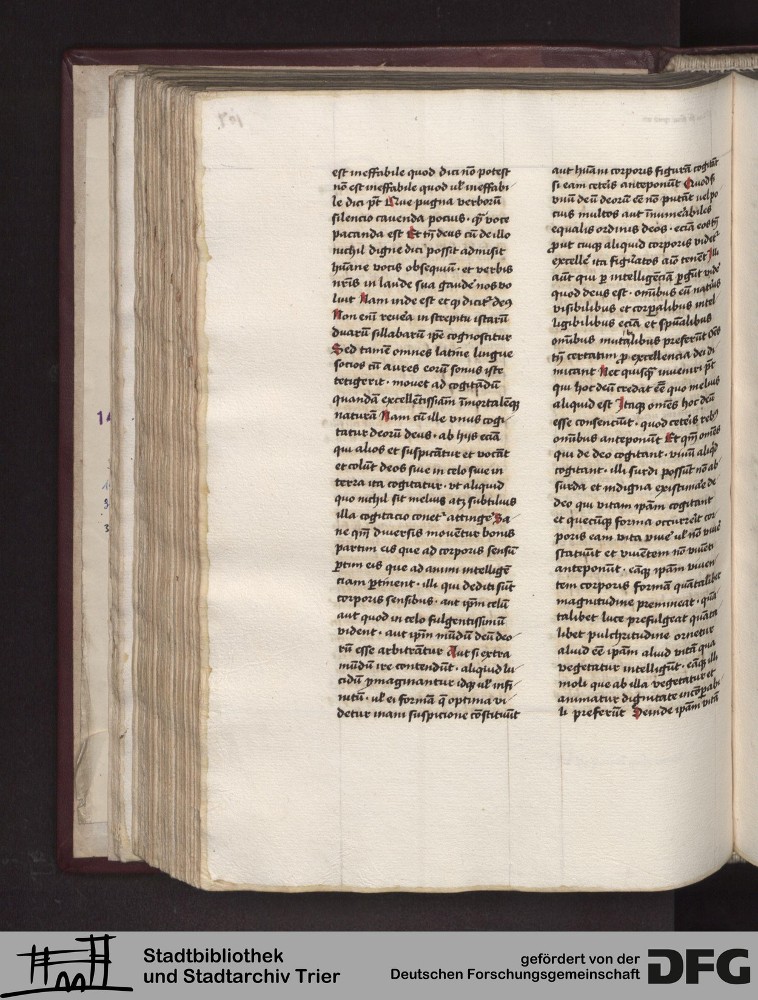 est ineffabile quod dici nō potest
nō est ineffabile quod ul' ineffabi
le dici pt̄ Que pugna verborū
silencio cauenda pocius · qͣ voce
pacanda est Et tn̄ deus cū de illo
nichil digne dici possit admisit
hūane vocis obsequiū · et verbis
nr̄is in laude sua gaude' nos vo
luit Nam inde est et qͥ dicit' deꝰ
Non em̄ reuea in strepitu istarū
duarū sillabarū ip̄e cognoscitur
Sed tamē omnes latine lingue
socios cū aures eorū sonus iste
tetigerit · mouet ad cogitādū
quandā excellētissiam īmortalēqꝫ
naturā Nam cū ille vnus cogi
tatur deorū deus · ab hijs eciā
qui alios et suspicātur et vocāt
et colūt deos siue in celo siue in
terra ita cogitatur · vt aliquid
quo nichil sit melius atqꝫ subtilius
illa cogitacio conet' attinge' Sa
ne qm̄ diuersis mouētur bonis
partim eis que ad corporis sensū
ꝑtim eis que ad animi intelligē
ciam ꝑtinent · illi qui dediti sūt
corporis sensibus · aut ip̄m celū
aut quod in celo fulgentissimū
vident · aut ip̄m mūdū deū deo
rū esse arbitrātur Aut si extra
mūdū ire contendūt · aliquid lu
cidū ymaginantur idqꝫ ul' infi
nitū · ul' ei formā q̄ optima vi
detur inani suspicione cōstituūt
aut hūani corporis figurā cogitāt
si eam ceteīs anteponūt Quodsi
vnū deū deorū eē nō putāt uel po
cius multos aut īnumerabiles
equalis ordinis deos · eciā eos tn̄
ꝓut cuiqꝫ aliquid corporis videt'
excelle' ita figuratos aīo tenēt Illi
aūt qui ꝑ intelligēciā ꝑgūt vide'
quod deus est · omībus eū naturis
visibilibus et corꝑalibus intel
ligibilibus eciā et spūalibus
omībus mutabilibus preferūt Oēs
tn̄ certatim ꝓ excellencia dei di
micant Nec quisqͣ inueniri pt̄
qui hoc deū credat eē quo melius
aliquid est Itaqꝫ omēs hoc deū
esse consenciūt · quod ceteīs rebꝰ
omībus anteponūt Et qm̄ omēs
qui de deo cogitant · viuū aliqͥd
cogitant · illi surdi possūt nō ab
surda et indigna existimare de
deo qui vitam ip̄am cogitant
et quecūqꝫ forma occurrerit cor
poris eam vita viue' ul' nō viue'
statuūt et viuētem nō viuēti
anteponūt · eāqꝫ ip̄am viuen
tem corporis formā quātalibet
magnitudine premineat · quā
talibet luce prefulgeat quāta
libet pulchritudine ornetur
aliud eē ip̄am aliud vitā qua
vegetatur intelligūt · eāqꝫ illi
moli que ab illa vegetatur et
animatur dignitate incōꝑabi
li preferūt Deinde ip̄am vitā
Stadtbibliothek
und Stadtarchiv Trier
gefördert von der
Deutschen Forschungsgemeinschaft
DFG